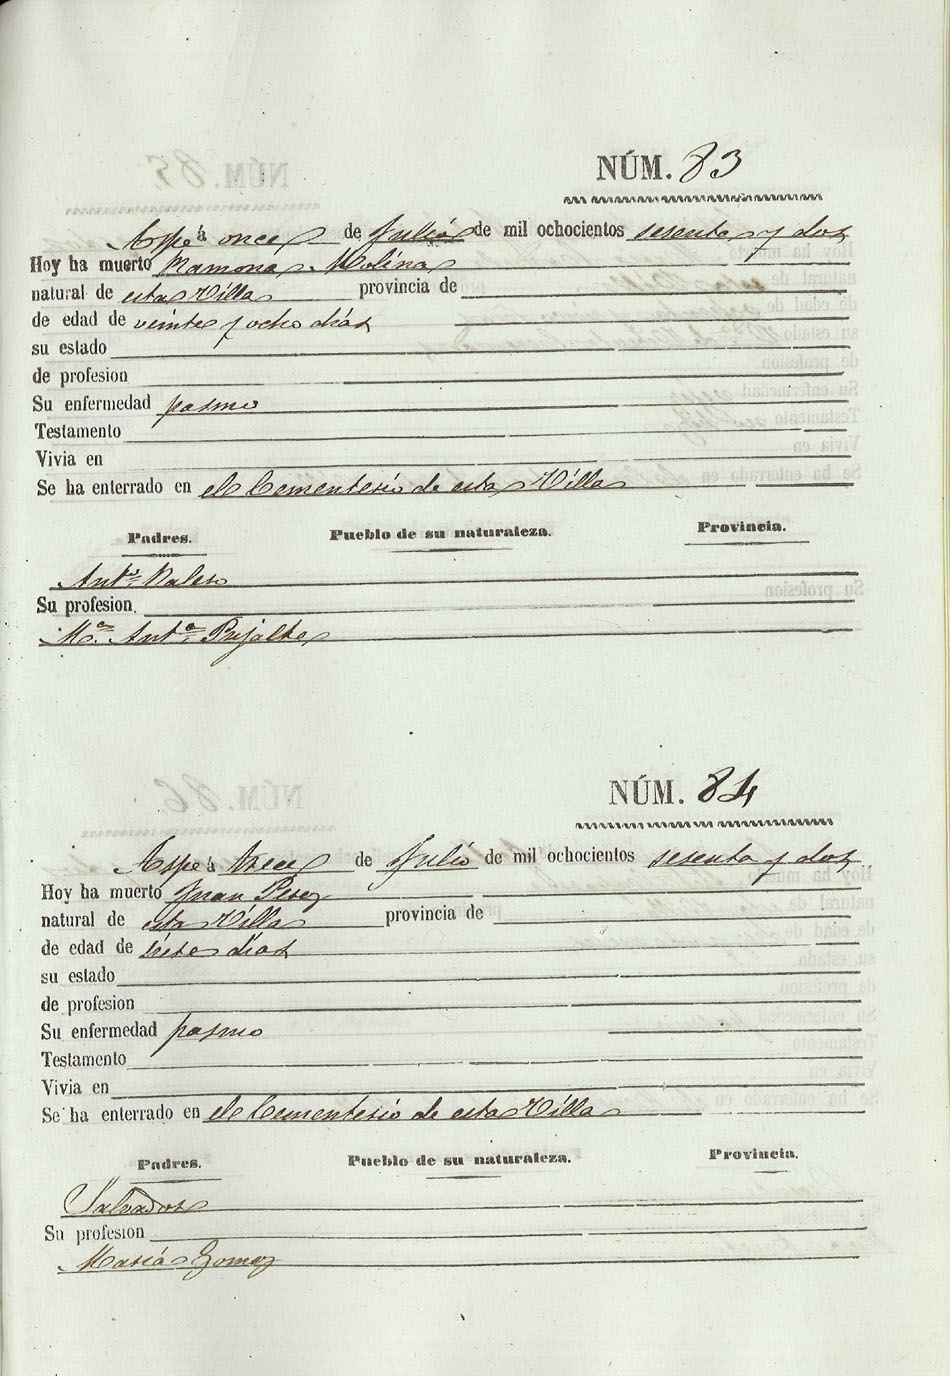 NÚM. 83
Aspe á once de Julio de mil ochocientos sesenta y dos
Hoy ha muerto Ramona Molina
natural de esta Villa provincia de
de edad de veinte y ocho dias
su estado
de profesion
Su enfermedad pasmo
Testamento
Vivia en
Se ha enterrado en el Cementerio de esta Villa
Padres. Pueblo de su naturaleza. Provincia.
Antº
Su profesion.
Mª Antª Pujalte
NÚM. 84
Aspe á trece de Julio de mil ochocientos sesenta y dos
Hoy ha muerto Juan Perez
natural de esta Villa provincia de
de edad de siete dias
su estado
de profesion
Su enfermedad pasmo
Testamento
Vivia en
Se ha enterrado en el Cementerio de esta Villa
Padres. Pueblo de su naturaleza. Provincia.
Salvador
Su profesion
Maria Gomez